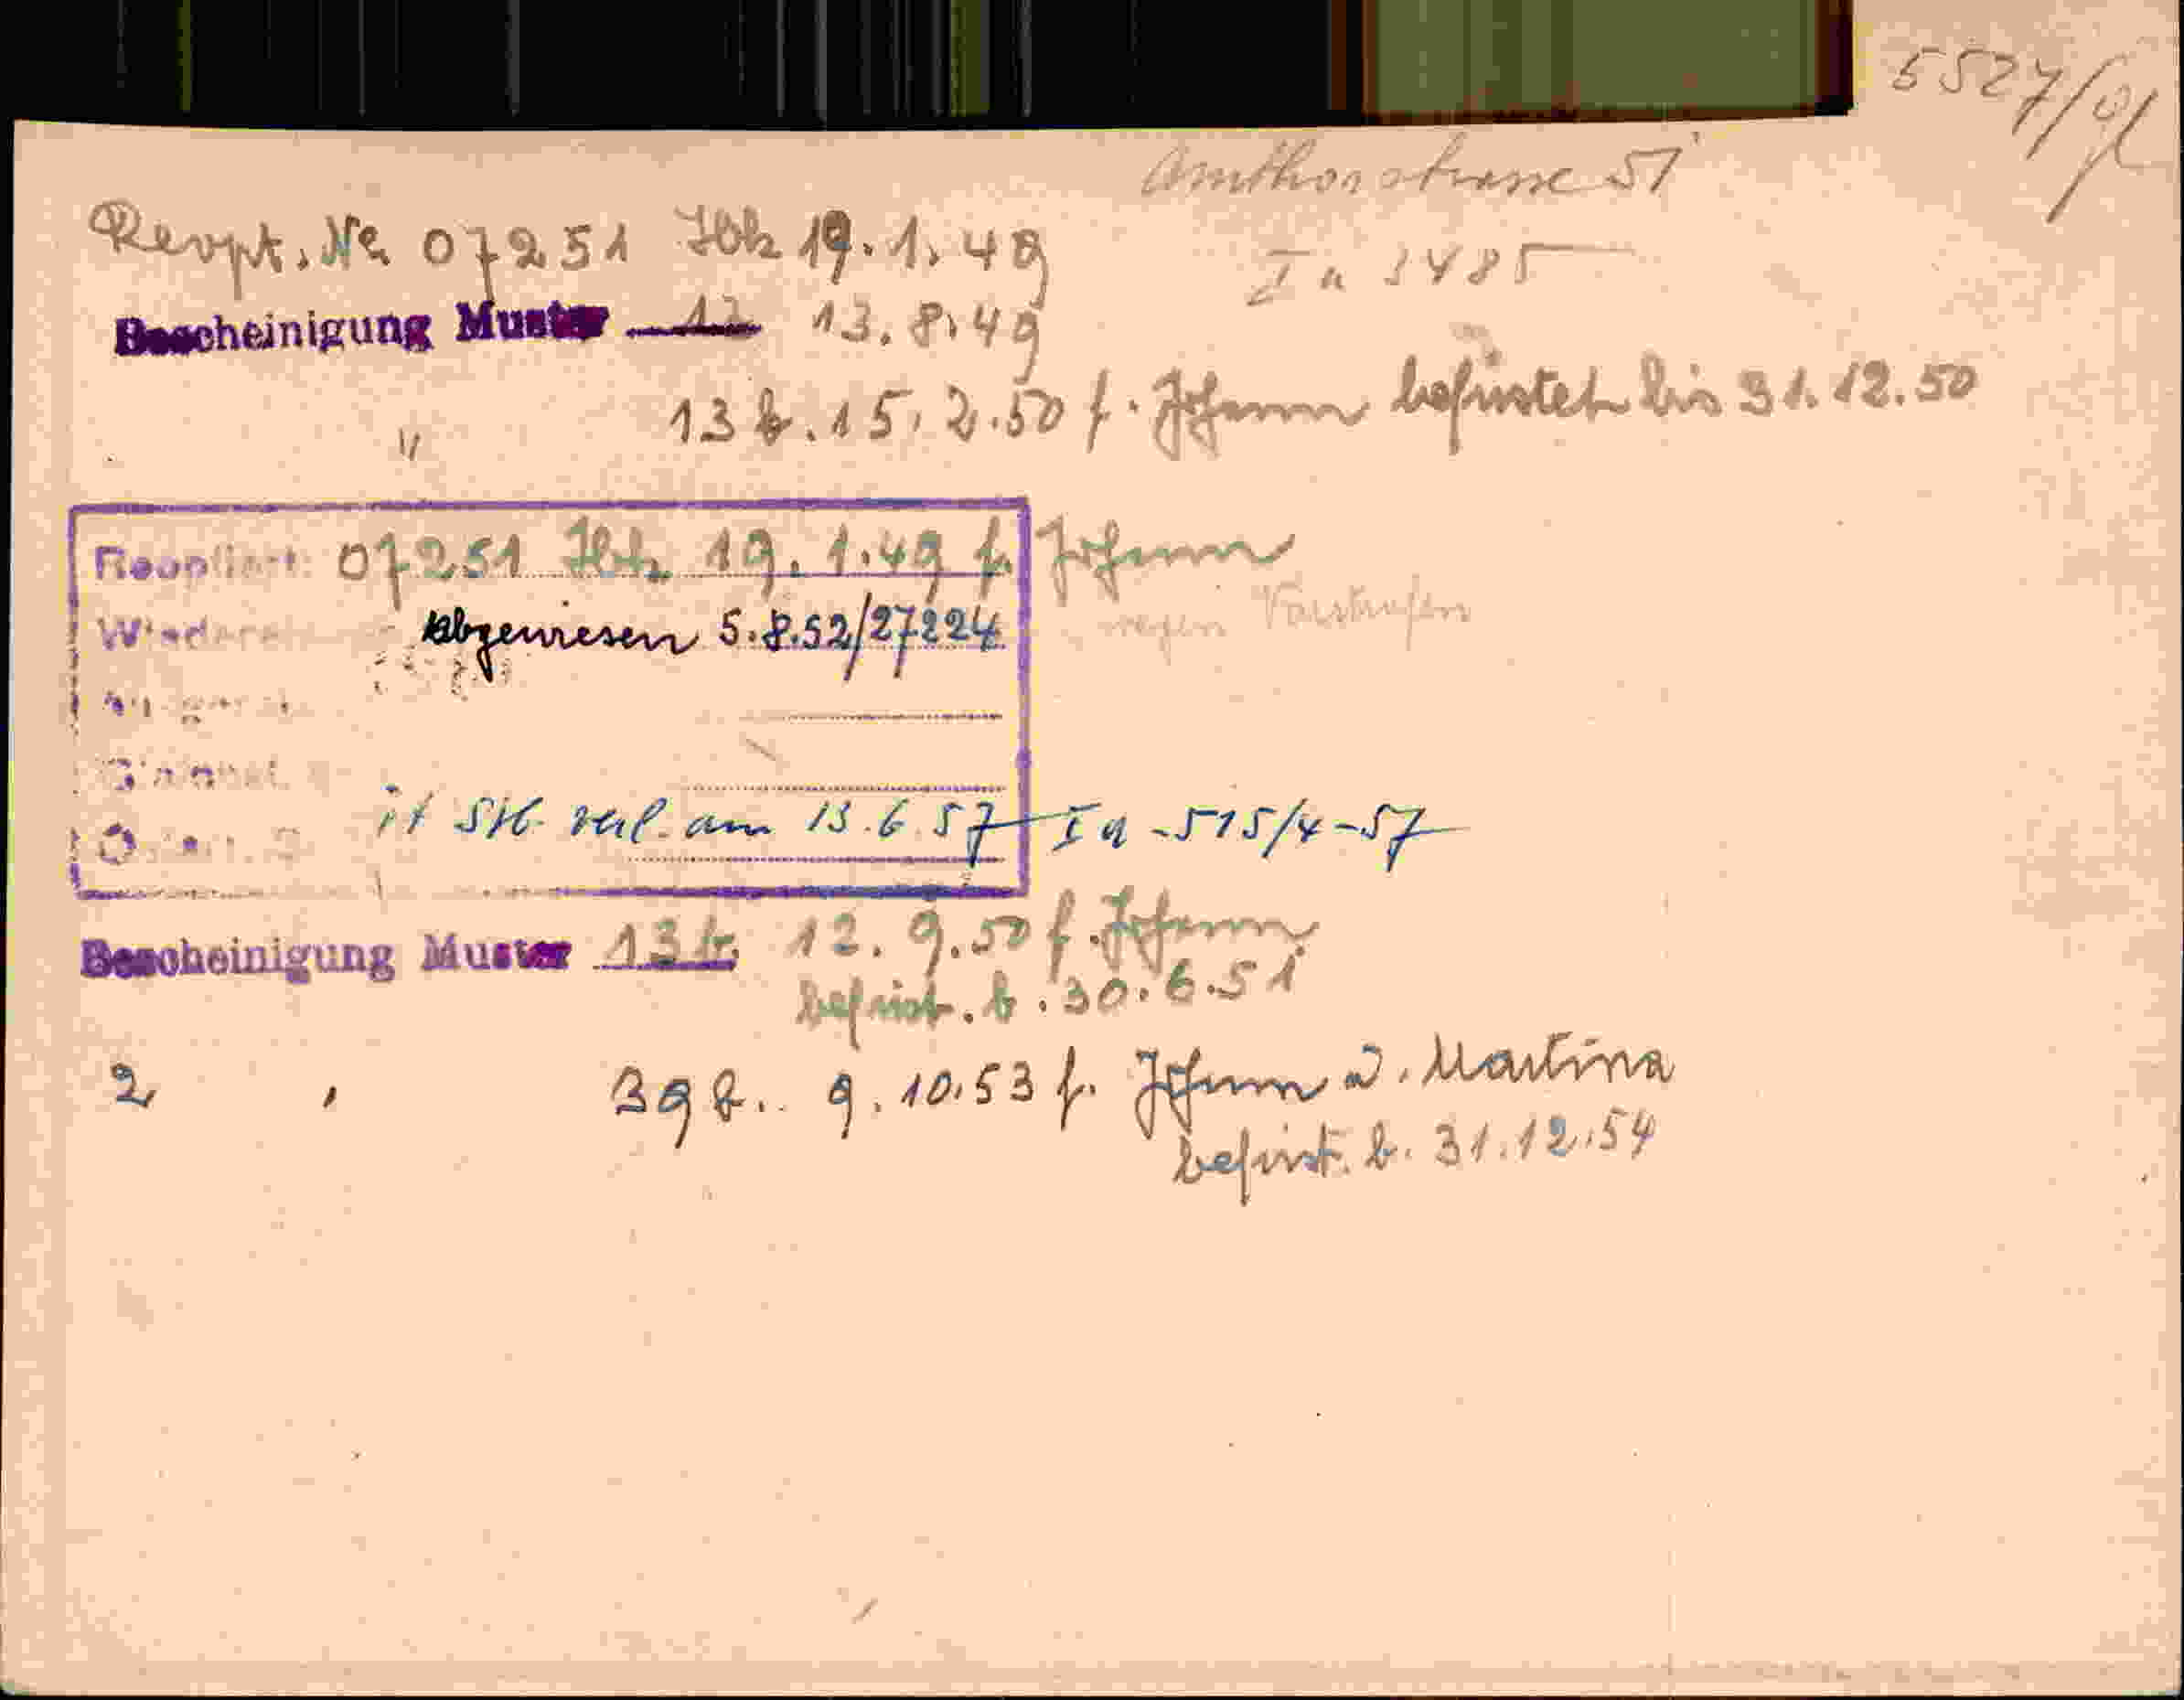 5527/
Amthorstrasse 51
Reopt. Nr. 07251 Jbk 19.1.49
Ia 3485
Bescheinigung Muster 13 13.8.49
" 13 b. 15.2.50 f. Johann befristet bis 31.12.50
Reoptiert: 07251 Jbk 19.1.49 f. Johann
abgewiesen 5.8.52/27224 wegen Vorstrafen
it Stb. verl. am 13.6.57 Ia -515/4-57
Bescheinigung Muster 13 b. 12.9.50 f. Johann
befrist. b. 30.6.51
2 " 39 b. 9.10.53 f. Johann u. Martina
befrist. b. 31.12.54